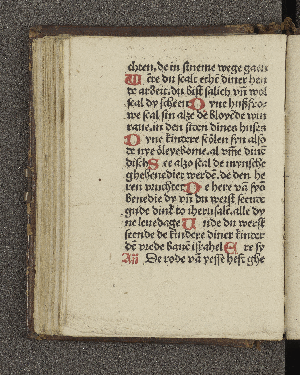 chten, de in sineme wege gaen
Wēte du scalt ethē diner hen
de arbeit. du bist salich vñ wol
scal dy scheen Dyne husfro-
we scal sin alze de bloyēde wyn
rane, in den siden dines huses
Dyne kindere scolen syn also
de nye oleyebome. al vmē dinē
disch See alzo scal de mynsche
ghebenediet werdē. de den he
ren vruchtet De here vā syō
benedie dy vñ du werst seende
gude dink to iherusalē. alle dy
ne leuedage Unde du werst
seende de kindere diner kinder
dē vrede bauē israhel Ere sy
Añ De rode vā yesse heft ghe